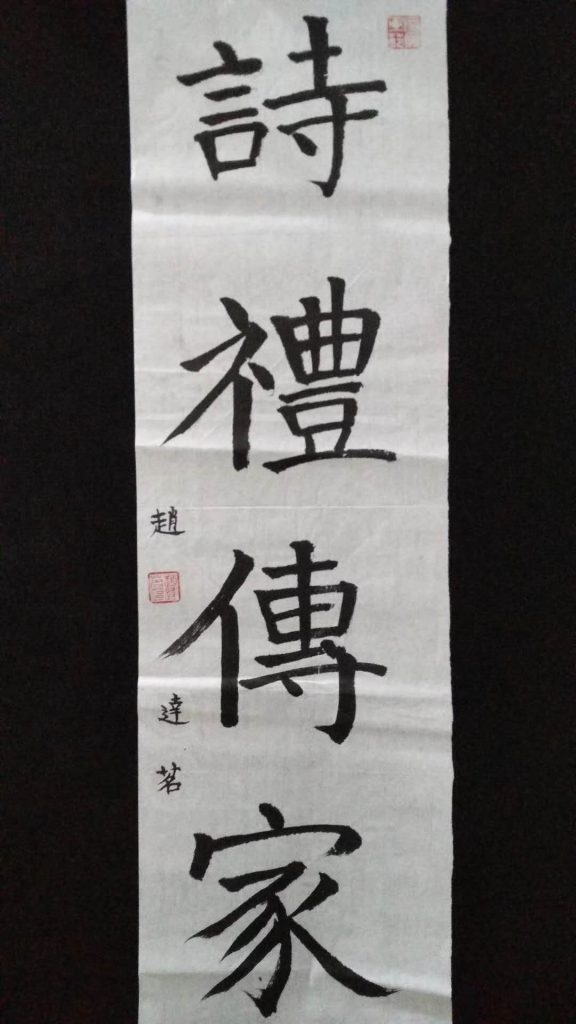 詩禮傳家
趙
達茗